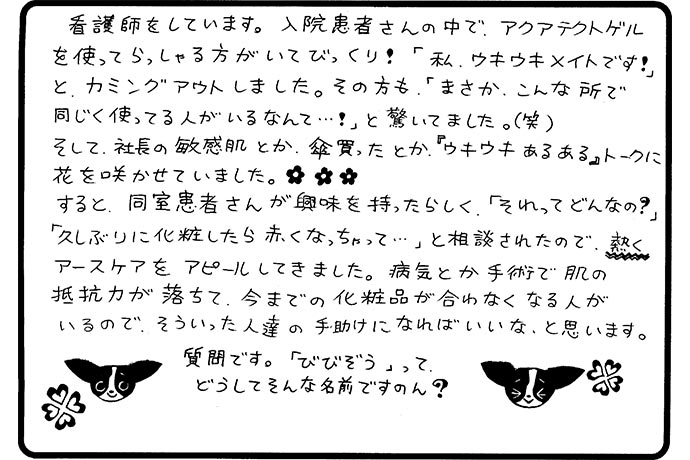 看護師をしています。入院患者さんの中で、アクアテクトゲル
を使ってらっしゃる方がいてびっくり!「私、ウキウキメイトです!」
と、カミングアウトしました。その方も、「まさか、こんな所で
同じく使ってる人がいるなんて…!」と驚いてました。(笑)
そして、社長の敏感肌とか、傘買ったとか、『ウキウキあるある』トークに
花を咲かせていました。
すると、同室患者さんが興味を持ったらしく、「それってどんなの?」
「久しぶりに化粧したら赤くなっちゃって…」と相談されたので、熱く
アースケアをアピールしてきました。病気とか手術で肌の
抵抗力が落ちて、今までの化粧品が合わなくなる人が
いるので、そういった人達の手助けになればいいな、と思います。
質問です。「びびぞう」って、
どうしてそんな名前ですのん?